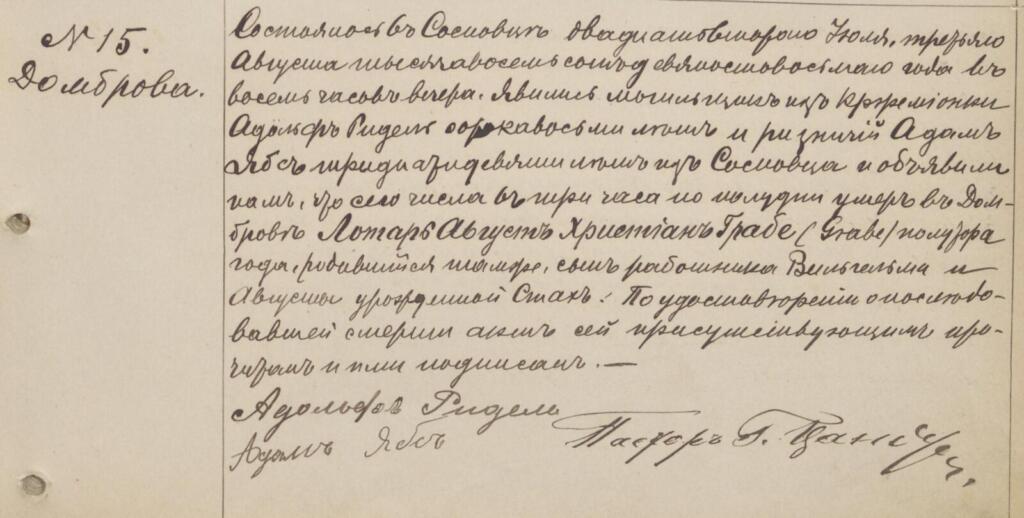 № 15.
Домброва.
Состоялось въ Сосновцѣ двадцать второго Іюля, третьяго
Августа тысяча восемьсотъ девяносто восьмаго года въ
восемь часовъ вечера. Явились могильщикъ изъ Кржеміонки
Адольфъ Ридель сорока восьми лѣтъ и ризничій Адамъ
Ябсъ тридцати девяти лѣтъ изъ Сосновца и объявили
намъ, что сего числа въ три часа по полудни умеръ въ Дом-
бровѣ Лотаръ Августъ Христіанъ Грабе (Grabe) полутора
года, родившійся тамже, сынъ работника Вильгельма и
Августы урожденной Стахъ. По удостовѣреніи о послѣдо-
вавшей смерти актъ сей присутствующимъ про-
читанъ и ими подписанъ. —
Адольфъ Ридель
Адамъ Ябсъ
Пасторъ Г.